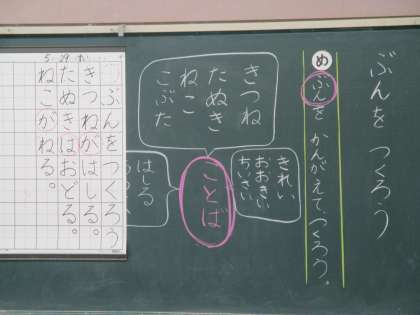 ぶんを つくろう
め ぶんを かんがえて、つくろう。
きれい
おおきい
ちいさい
きつね
たぬき
ねこ
こぶた
ことば
はしる
5/29
ぶんをつくろう
きつねがはしる。
たぬきはおどる。
ねこがねる。